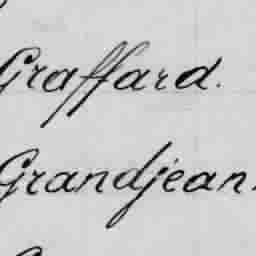 Graffard.
Grandjean.